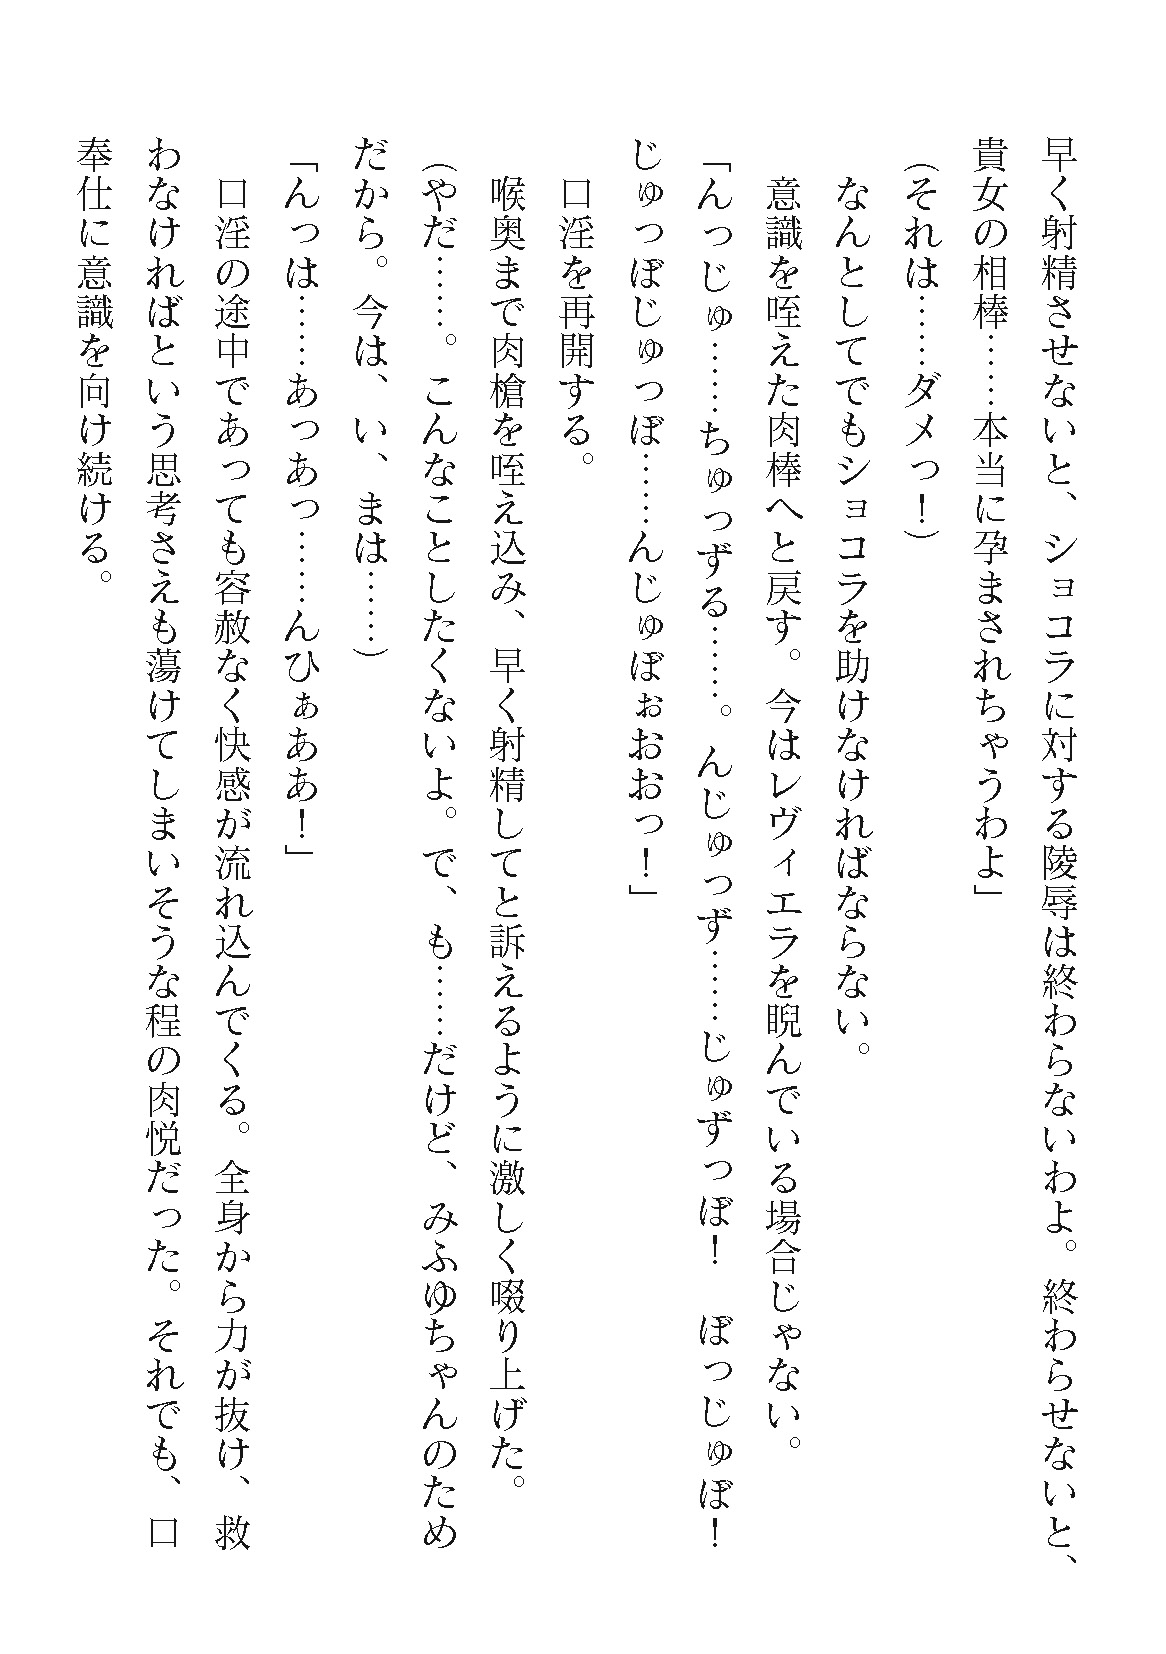 早く射精させないと、ショコラに対する陵辱は終わらないわよ。終わらせないと、
貴女の相棒……本当に孕まされちゃうわよ」
（それは……ダメっ！）
　なんとしてでもショコラを助けなければならない。
　意識を咥えた肉棒へと戻す。今はレヴィエラを睨んでいる場合じゃない。
「んっじゅ……ちゅっずる……。んじゅっず……じゅずっぽ！　ぽっじゅぽ！
じゅっぽじゅっぽ……んじゅぽぉおおっ！」
　口淫を再開する。
　喉奥まで肉槍を咥え込み、早く射精してと訴えるように激しく啜り上げた。
（やだ……。こんなことしたくないよ。で、も……だけど、みふゆちゃんのため
だから。今は、い、まは……）
「んっは……あっあっ……んひぁああ！」
　口淫の途中であっても容赦なく快感が流れ込んでくる。全身から力が抜け、救
わなければという思考さえも蕩けてしまいそうな程の肉悦だった。それでも、口
奉仕に意識を向け続ける。